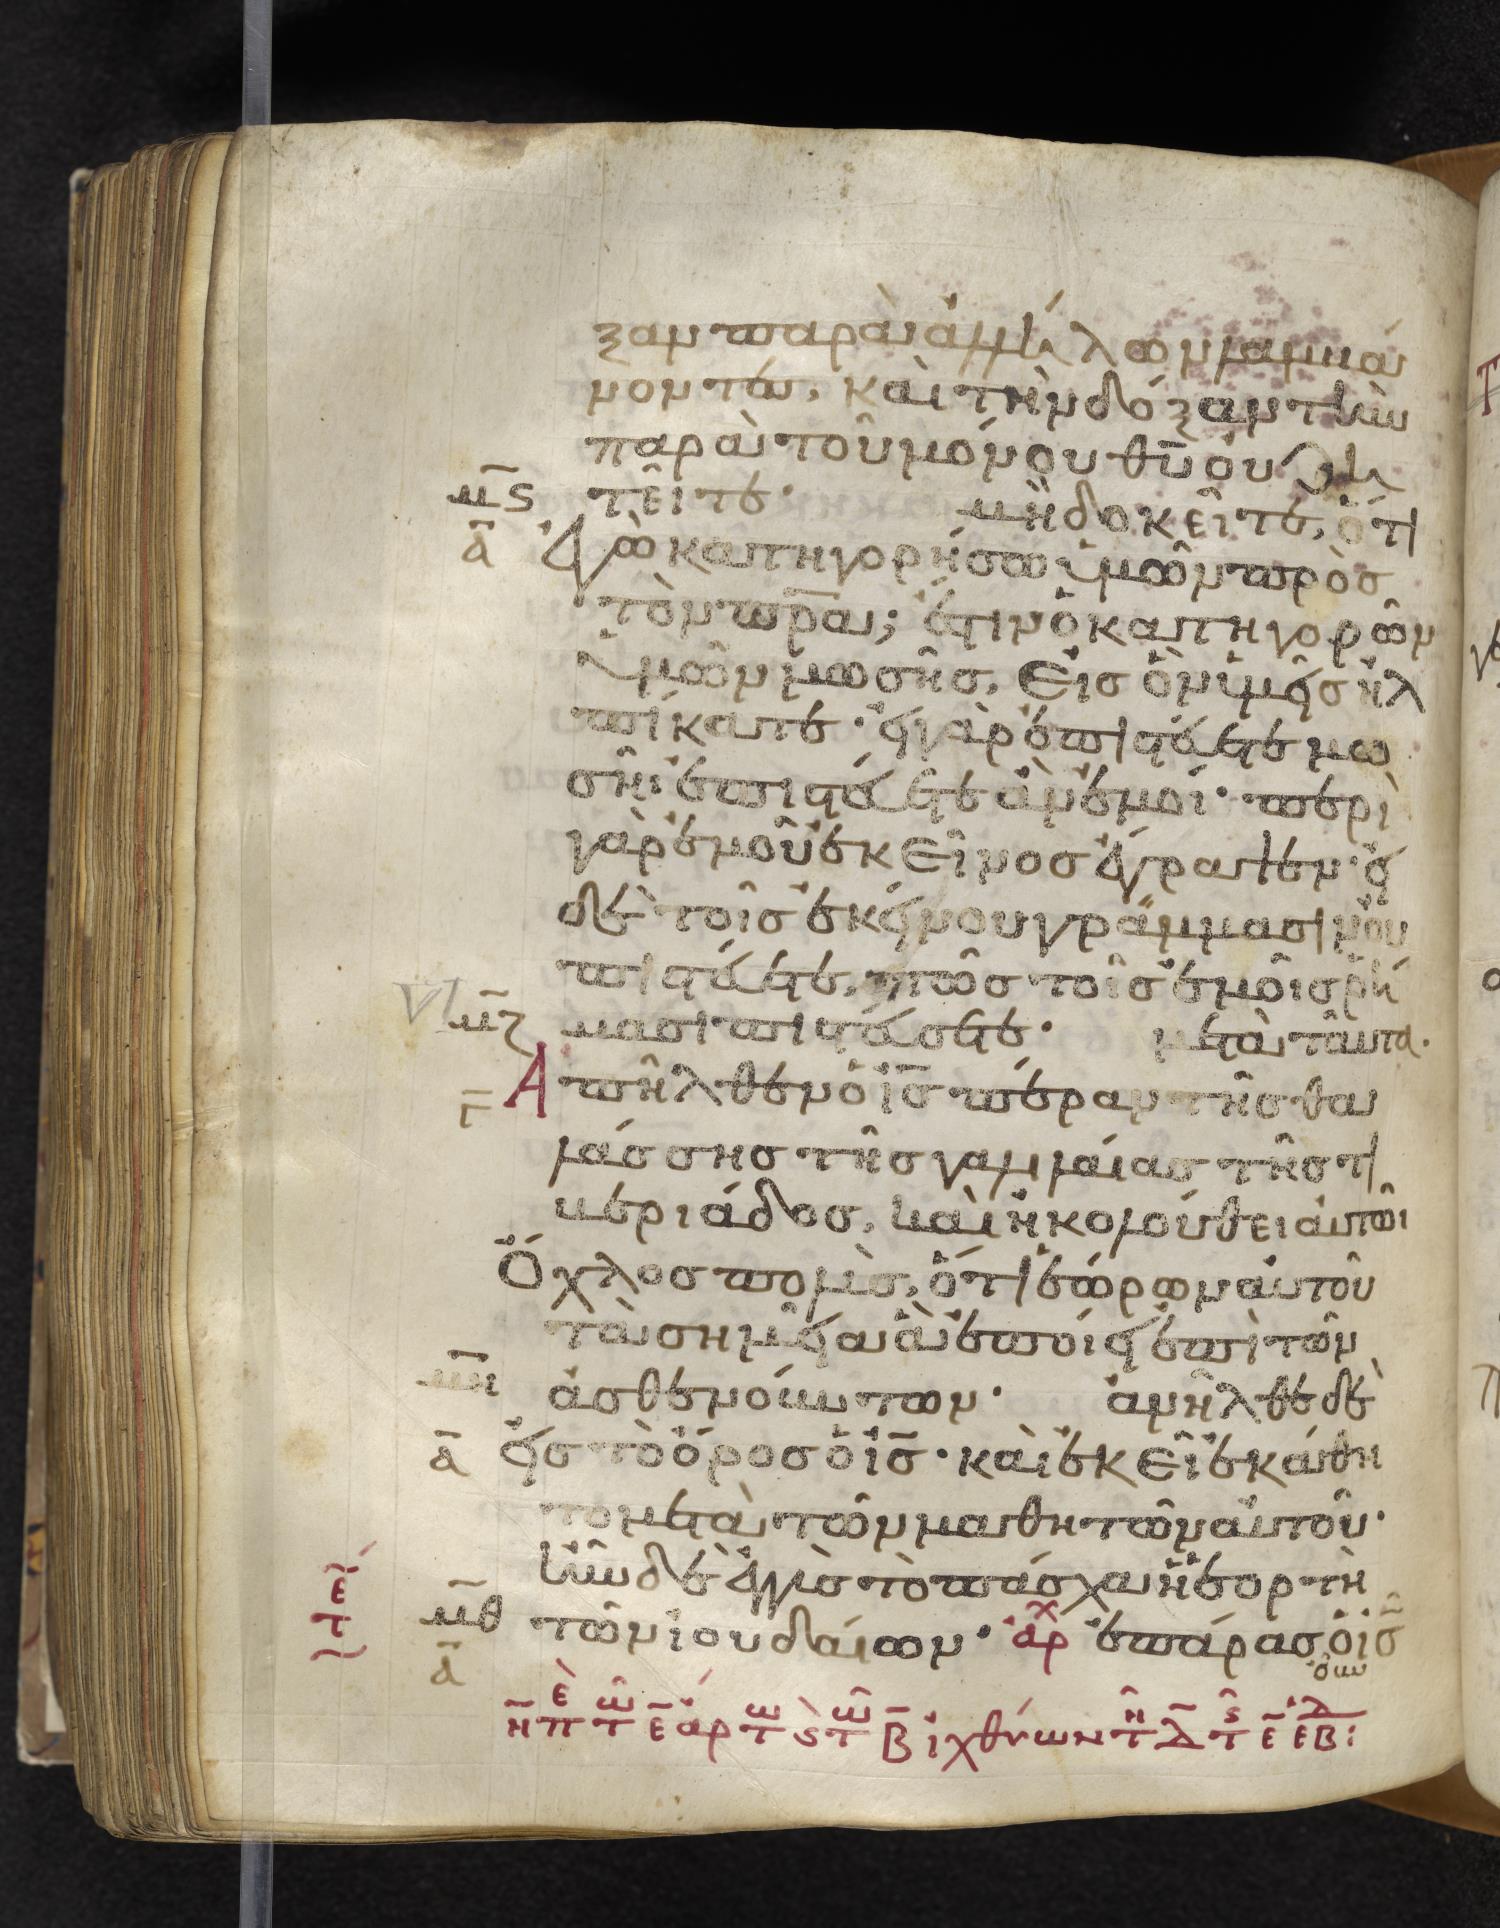 ξαν παρὰ ἀλλήλων λαμβά
νοντες, καὶ τὴν δόξαν τὴν
παρὰ τοῦ μόνου θῡ οὐ ζη
μ̄ς τεῖτε· μὴ δοκεῖτε, ὅτι
ᾱ ἐγὼ κατηγορήσω ὑμῶν πρὸς
τὸν πρ̄α; ἔστιν ὁ κατηγορῶν
ὑμῶν μωσῆς, εἰς ὃν ὑμεῖς ἠλ
πίκατε· εἰ γὰρ ἐπιστεύετε μω
σῆι ἐπιστεύετε ἂν ἐμοί· περὶ
γὰρ ἐμοῦ ἐκεῖνος ἔγραψεν· εἰ
δὲ τοῖς ἐκείνου γράμμασιν οὐ
πιστεύετε, πῶς τοῖς ἐμοῖς ῥή
μ̄ζ μασι πιστεύσετε· μετὰ ταῦτα.
Γ̄ Ἀπῆλθεν ὁ ῑς̄ πέραν τῆς θα
λάσσης τῆς γαλιλαίας τῆς τι
βεριάδος, καὶ ἠκολούθει αὐτῶι
Ὄχλος πολὺς, ὅτι ἑώρων αὐτοῦ
τὰ σημεῖα ἃ ἐποίει ἐπὶ τῶν
μ̄η ἀσθενούντων· ἀνῆλθε δὲ
ᾱ εἰς τὸ ὄρος ὁ ῑς̄· καὶ ἐκεῖ ἐκάθη
το μετὰ τῶν μαθητῶν αὐτοῦ·
ἦν δὲ ἐγγὺς τὸ πάσχα ἡ ἑορτὴ
μ̄θ τῶν ἰουδαίων· ἀρχ ἐπάρας ὁ ῑς̄
ᾱ